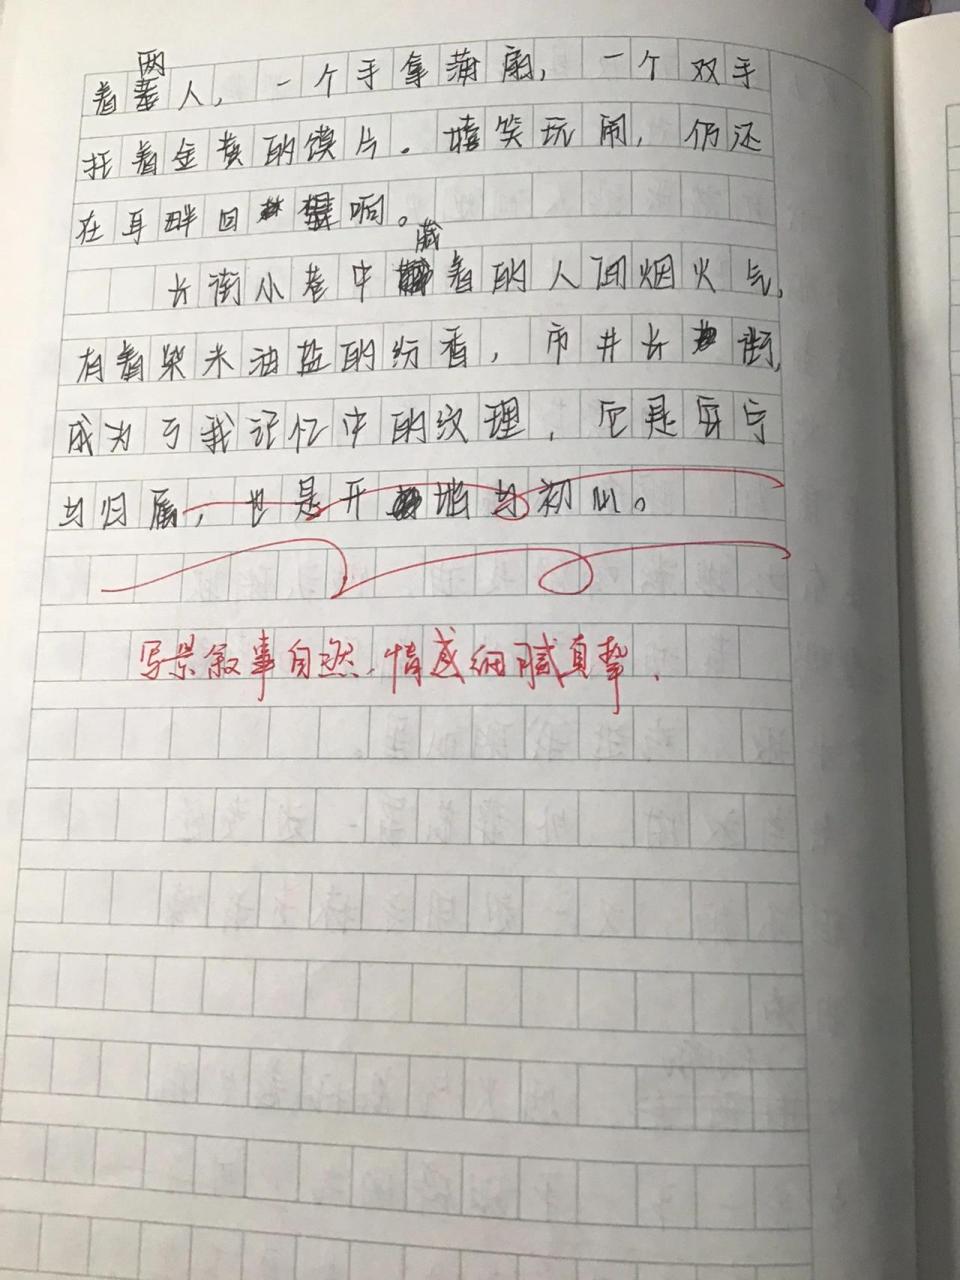 着两人，一个手拿蒲扇，一个双手
托着金黄的馍片。嘻笑玩闹，仍还
在耳畔回响。
长街小巷中藏着的人间烟火气，
有着柴米油盐的纷香，市井长街，
成为了我记忆中的纹理，它是安宁
与归属，也是开端与初心。
写景叙事自然，情感细腻真挚．